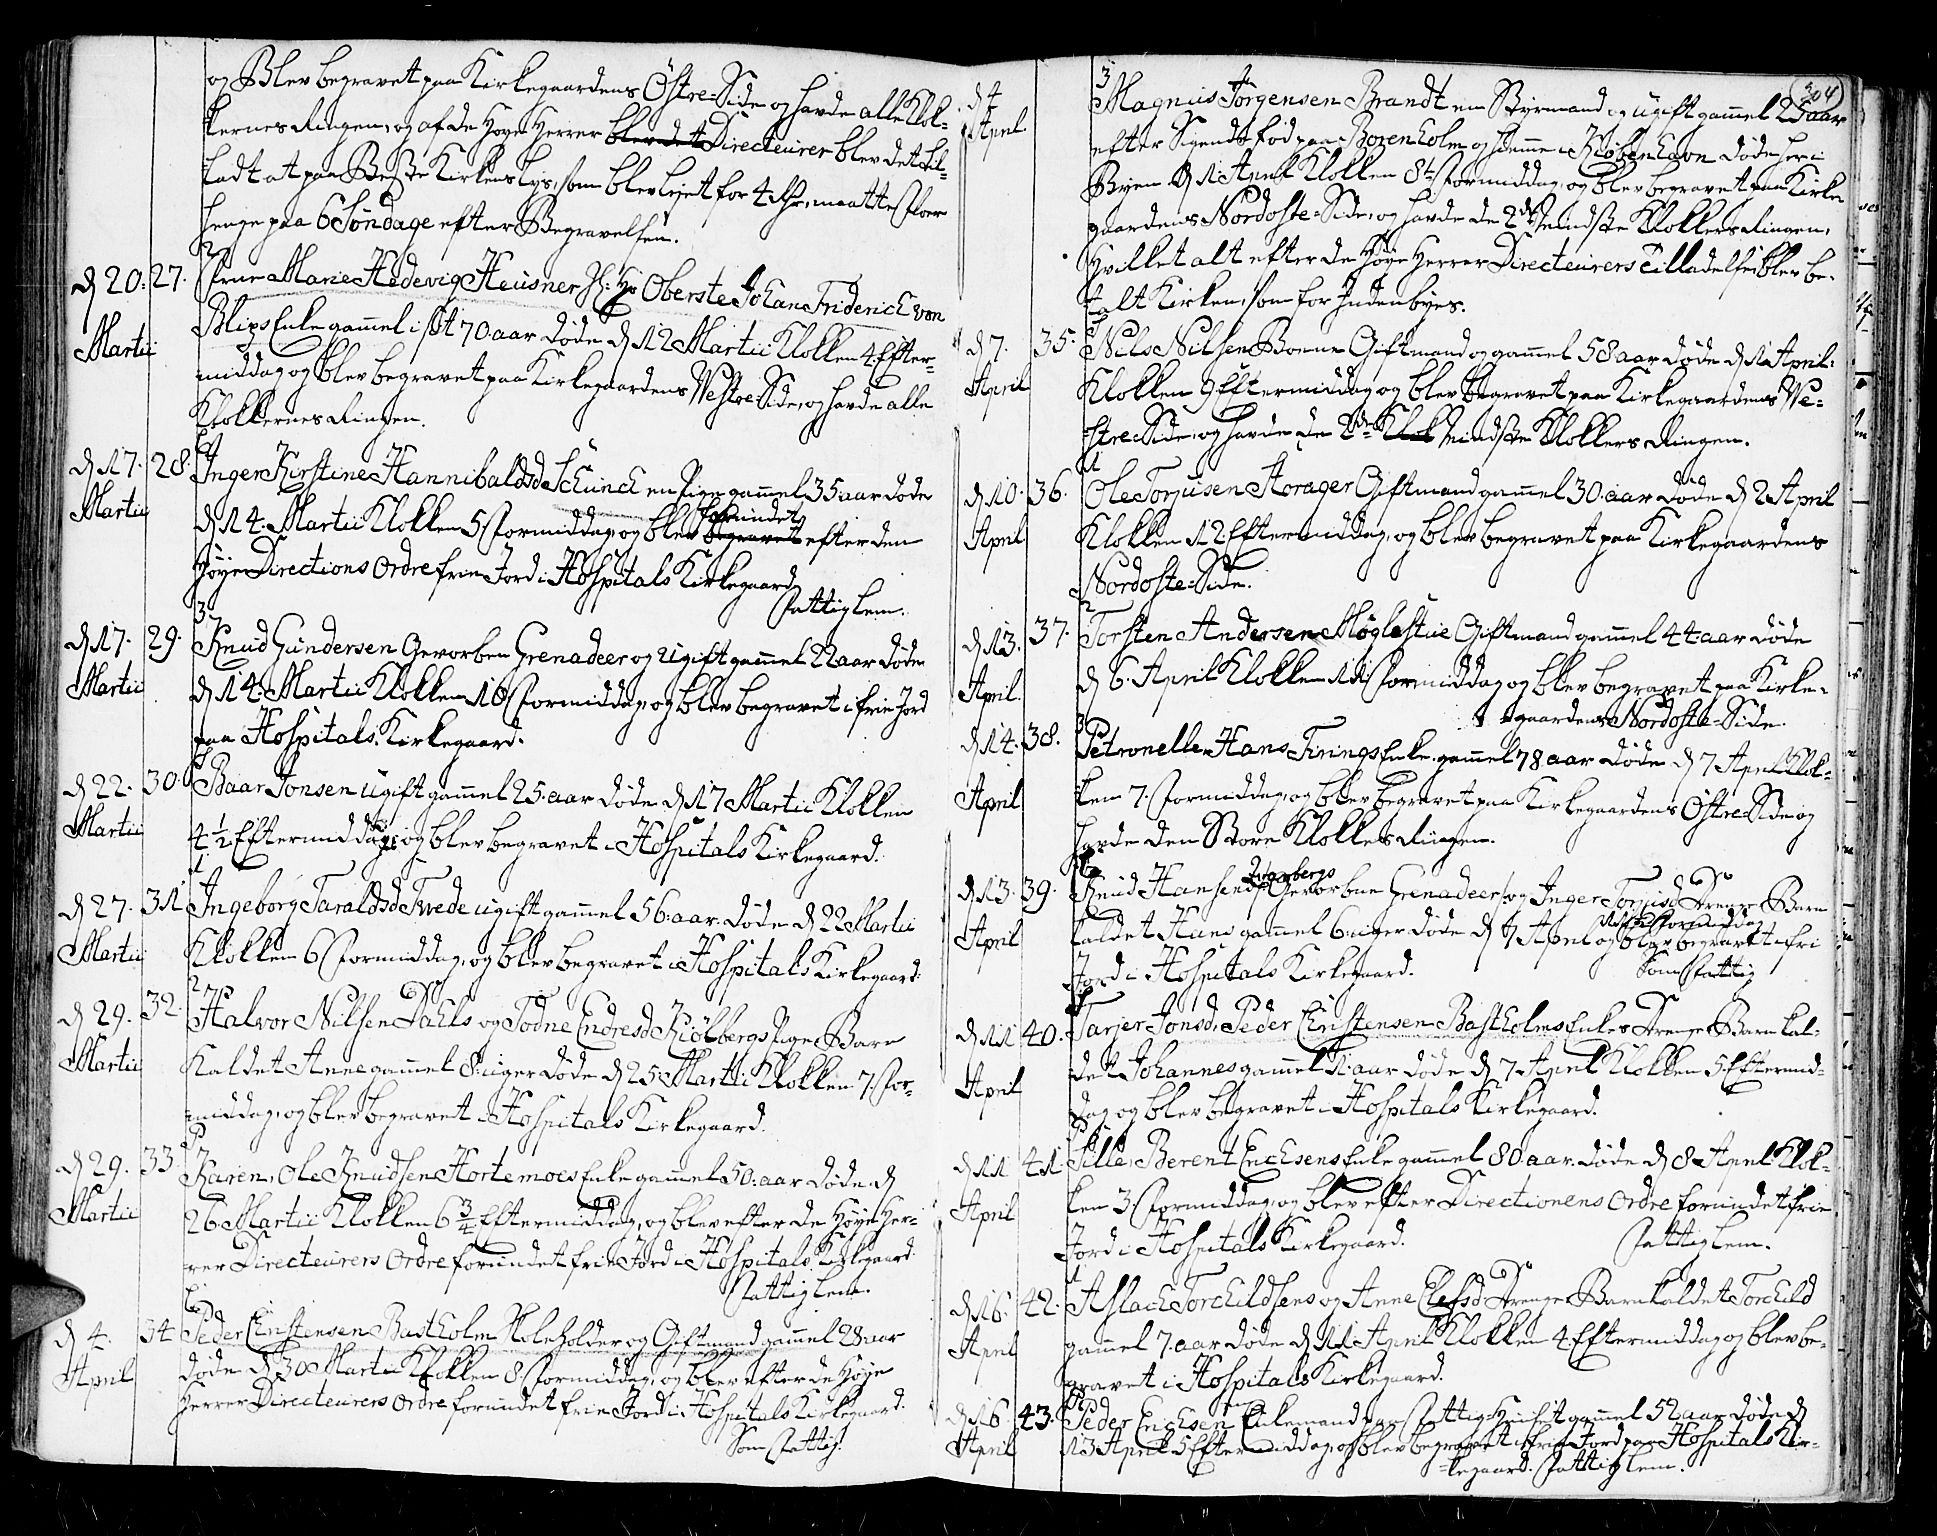 og Blev begravet paa Kirkegaardens Östre-Side og havde alle Klok-
kernes Ringen, og af de Høye Herrer blev det Directeurer blev det til-
ladt at paa Beste Kirkens Lys, som blev leyet for 4 rdr, maatte
henge paa 6 Söndage efter Begravelsen.
2
d 20. 27. Frue Marie Hedevig Heusner Sl: Hr Oberste Johan Friderich von
Martii Blips Enke gammel i sit 70 aar døde d 12 Martii Klokken 4 Efter-
middag og blev begravet paa Kirkegaardens Vestre-Side, og havde alle
Klokkernes Ringen.
d 17. 28. Inger Kirstine Hannibalsd Schunck en Pige gammel 35 aar døde
forundet
Martii d 14. Martii Klokken 5 Formiddag, og blev begravet efter den
Høye Directions Ordre frie Jord i Hospitals Kirkegaard
Fattiglem.
3
d 17. 29. Knud Gundersen Gevorben Grenadeer og Ugift gammel 22 aar døde
Martii d 14. Martii Klokken 10 Formiddag, og blev begravet i frie Jord
paa Hospitals Kirkegaard.
d 22. 30. Baar Jonsen Ugift gammel 25. aar døde d 17 Martii Klokken
Martii 4 1/2 Eftermiddag, og blev begravet i Hospitals Kirkegaard.
1
d 27. 31 Ingeborg Taraldsd Twede Ugift gammel 56. aar. døde d 22 Martii
Martii Klokken 6 Formiddag, og blev begravet i Hospitals Kirkegaard.
2
d 29. 32. Halvor Nilsen Dahls og Todne Endresd Kiölbergs Pige Barn
Martii Kaldet Anne gammel 8. uger døde d 25 Martii Klokken 7. For-
middag, og blev begravet i Hospitals Kirkegaard.
d 29. 33. Karen, Ole Knudsen Hortemoes Enke gammel 50. aar døde d
Martii 26 Martii Klokken 6 3/4 Eftermiddag, og blev efter de Høye Her-
rer Directeurers Ordre forundet frie Jord i Hospitals Kirkegaard.
Fattiglem.
d 4. 34 Peder Christensen Bastholm Skoleholder og Giftmand gammel 28 aar
April døde d 30 Martii Klokken 8 Formiddag, og blev efter de Høye
Herrer Directeurers Ordre forundet frie Jord i Hospitals Kirkegaard.
Som Fattig.
304
3
d 4 Magnus Jörgensen Brandt en Styrmand og ugift gammel 25 aar
April efter Sigende fød paa Borenholm og hiemme i Kiöbenhavn døde her i
Byen d 1 April Klokken 8 Formiddag, og blev begravet paa Kirke
gaardens Nordoste-Side, og havde de 2de Mindste Klokkers Ringen,
Hvilket alt efter de Høye Herrer Directeurers Tilladelse blev be-
talt Kirken, som for Indenbyes.
d 7. 35. Nils Nilsen Boenn Giftmand og gammel 58 aar døde d 1 April.
April Klokken 9 Eftermiddag og blev begravet paa Kirkegaardens Ve-
stre-Side, og havde de 2de Klok Mindste Klokkers Ringen.
1
d 10. 36. Ole Torjusen Aorager Giftmand gammel 30. aar døde d 2 April
April Klokken 12 Eftermiddag, og blev begravet paa Kirkegaardens
Nordoste-Side.
2
d 13. 37. Torsten Andersen Møglestue Giftmand gammel 44. aar døde
April. d 6. April Klokken 11 Formiddag og blev begravet paa Kirke-
gaardens Nordoste-Side.
3
d 14. 38. Petronelle Hans Firings Enke gammel 78 aar døde d 7 April Klok-
April ken 7. Formiddag, og blev begravet paa Kirkegaardens Östre-Side og
havde den Store Klokkes Ringen.
d 13. 39. Knud Hansens Gevorben Grenadeer, og Inger Torjusd Drenge Barn
April kaldet Hans gammel 6. uger døde d 9 April og blev begravet i fri
Jord i Hospitals Kirkegaard. Som Fattig
d 11 40. Tarjer Jonsd, Peder Christensen Bastholms Enkes Drenge Barn kal-
April det Johannes gammel 1. aar døde d 7 April Klokken 5 Eftermid-
dag og blev begravet i Hospitals Kirkegaard.
d 11 41 Sille, Berent Erichsens Enke gammel 80. aar. døde d 8 April Klok-
April ken 3 Formiddag, og blev efter Directionens Ordre forundet frie
Jord i Hospitals Kirkegaard. Fattiglem.
1
d 16. 42. Aslach Torchildsens og Anne Elefsd Drenge Barn kaldet Torchild
April gammel 7. aar døde d 11 April Klokken 4 Eftermiddag og blev be-
gravet i Hospitals Kirkegaard.
d 16 43. Peder Erichsen Enkemand paa Fattig Huuset gammel 52 aar døde d
April 13 April 5 Eftermiddag, og blev begravet i frie Jord paa Hospitals Kir-
kegaard. Fattiglem.